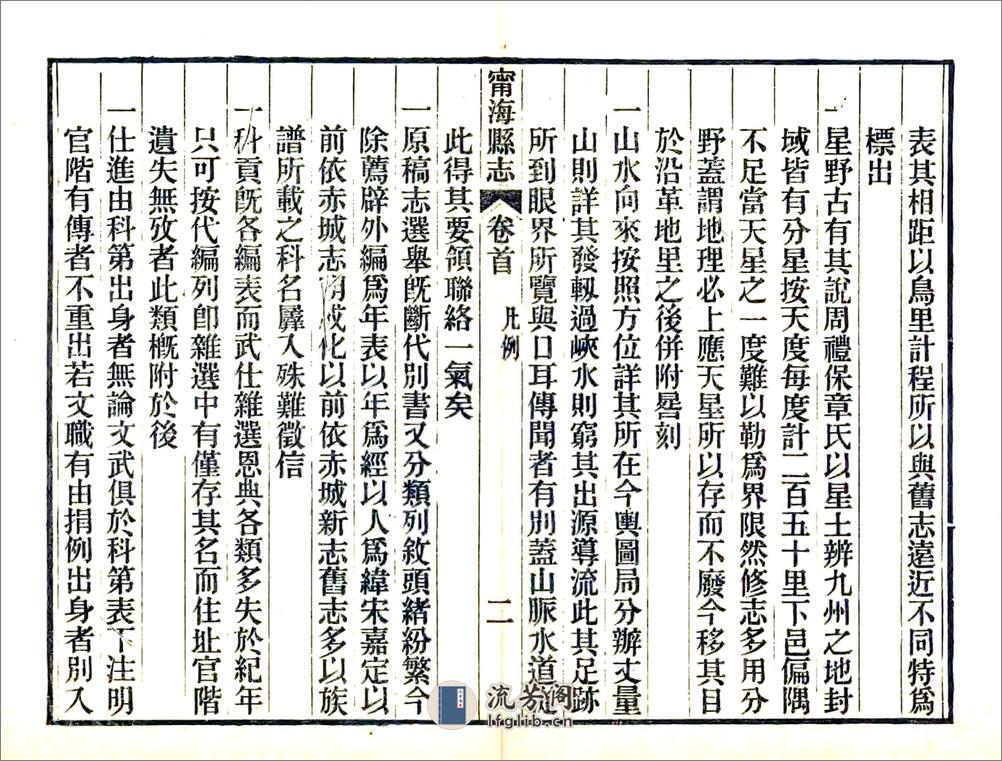 表其相距以鳥里計程所以與舊志遠近不同特為
標出
一星野古有其說周禮保章氏以星土辨九州之地封
域皆有分星按天度每度計二百五十里下邑偏隅
不足當天星之一度難以勒為界限然修志多用分
野蓋謂地理必上應天星所以存而不廢今移其目
於沿革地里之後併附晷刻
一山水向來按照方位詳其所在今輿圖局分辦丈量
山則詳其發軔過峽水則窮其出源導流此其足跡
所到眼界所覽與口耳傳聞者有別蓋山脈水道
甯海縣志 卷首 凡例 二
此得其要領聯絡一氣矣
一原稿志選舉既斷代別書又分類列敘頭緒紛繁今
除薦辟外編為年表以年為經以人為緯宋嘉定以
前依赤城志明成化以前依赤城新志舊志多以族
譜所載之科名羼入殊難徵信
一科貢既各編表而武仕雜選恩典各類多失於紀年
只可按代編列卽雜選中有僅存其名而住址官階
遺失無攷者此類槪附於後
一仕進由科第出身者無論文武俱於科第表下注明
官階有傳者不重出若文職有由捐例出身者別入
流芳阁
lfglib.cn